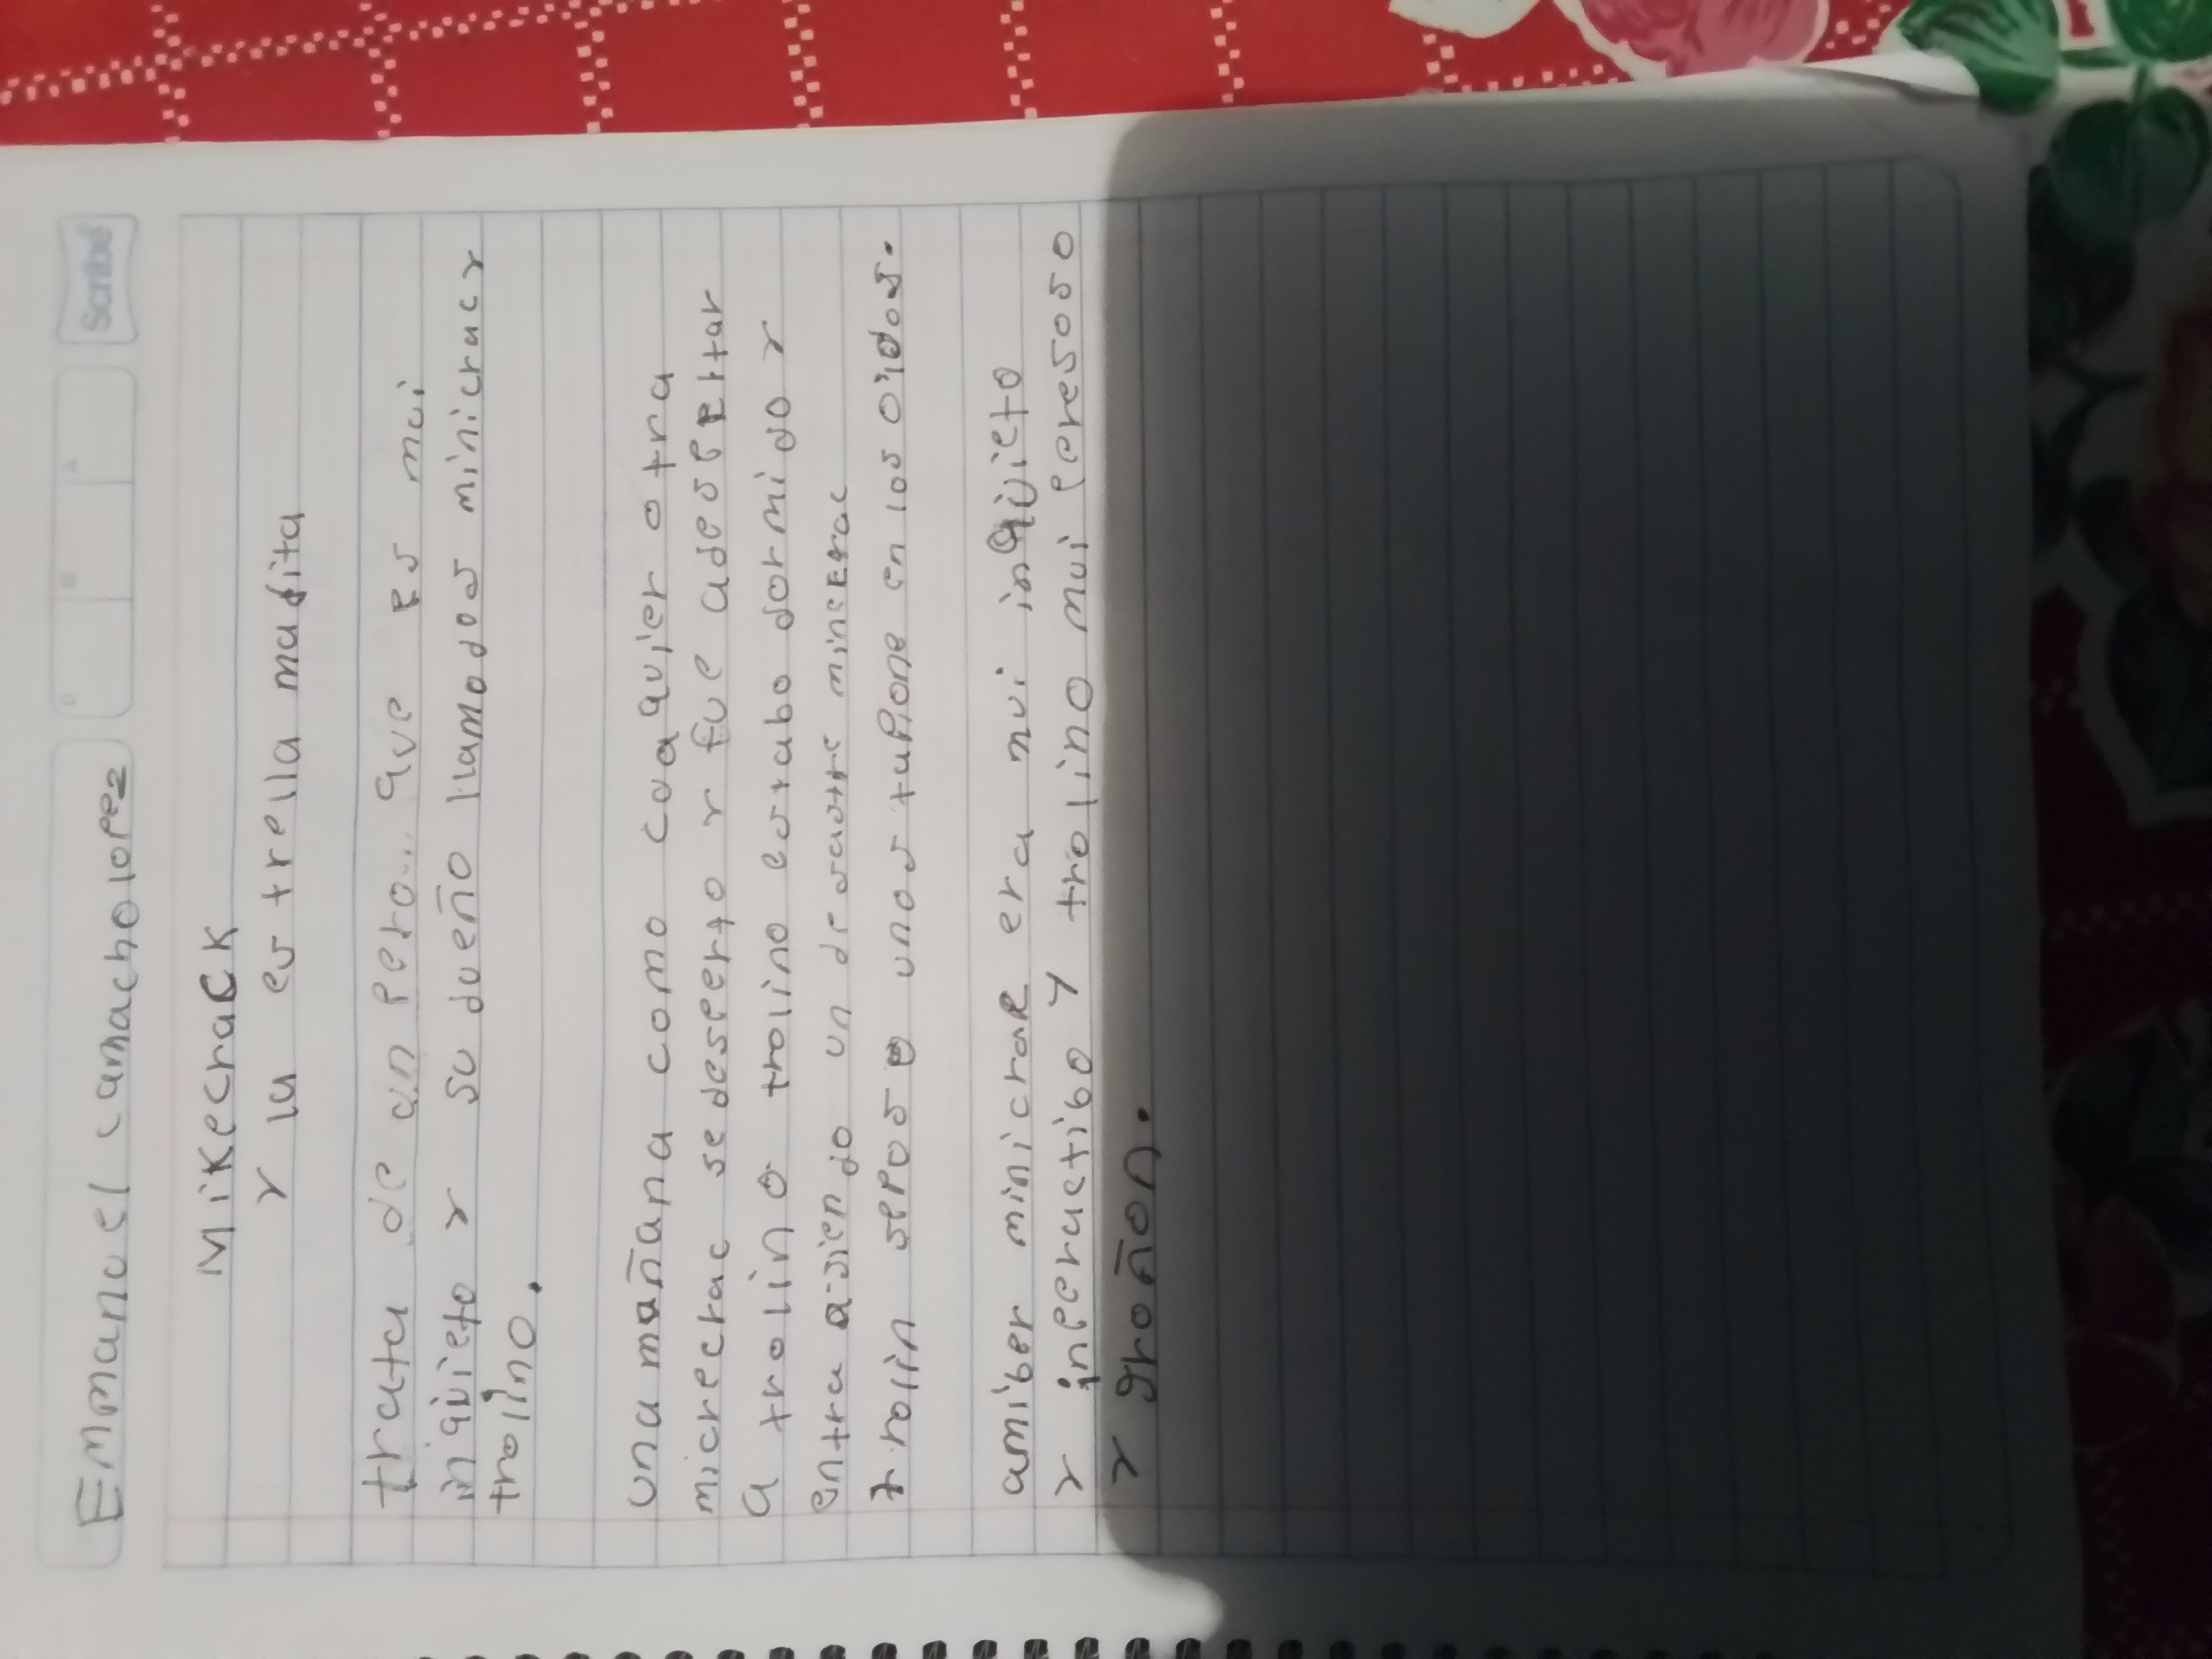 Emanuel camacho lopez
Scribe
D M A
Mikecrack
y la es trella madita
trata de un pero... que es mui
inquieto y su dueño llamados minicrac y
trolino.
una mañana como cuaquier otra
micrecrac se desperto y fue adespertar
a trolino trolino estabo dormido y
entra asiendo un desautre
trolin sepos unos tapone en los oidos.
amiber minicrak era mui inquieto
y inperactibo y trolino mui peresoso
y groñon.